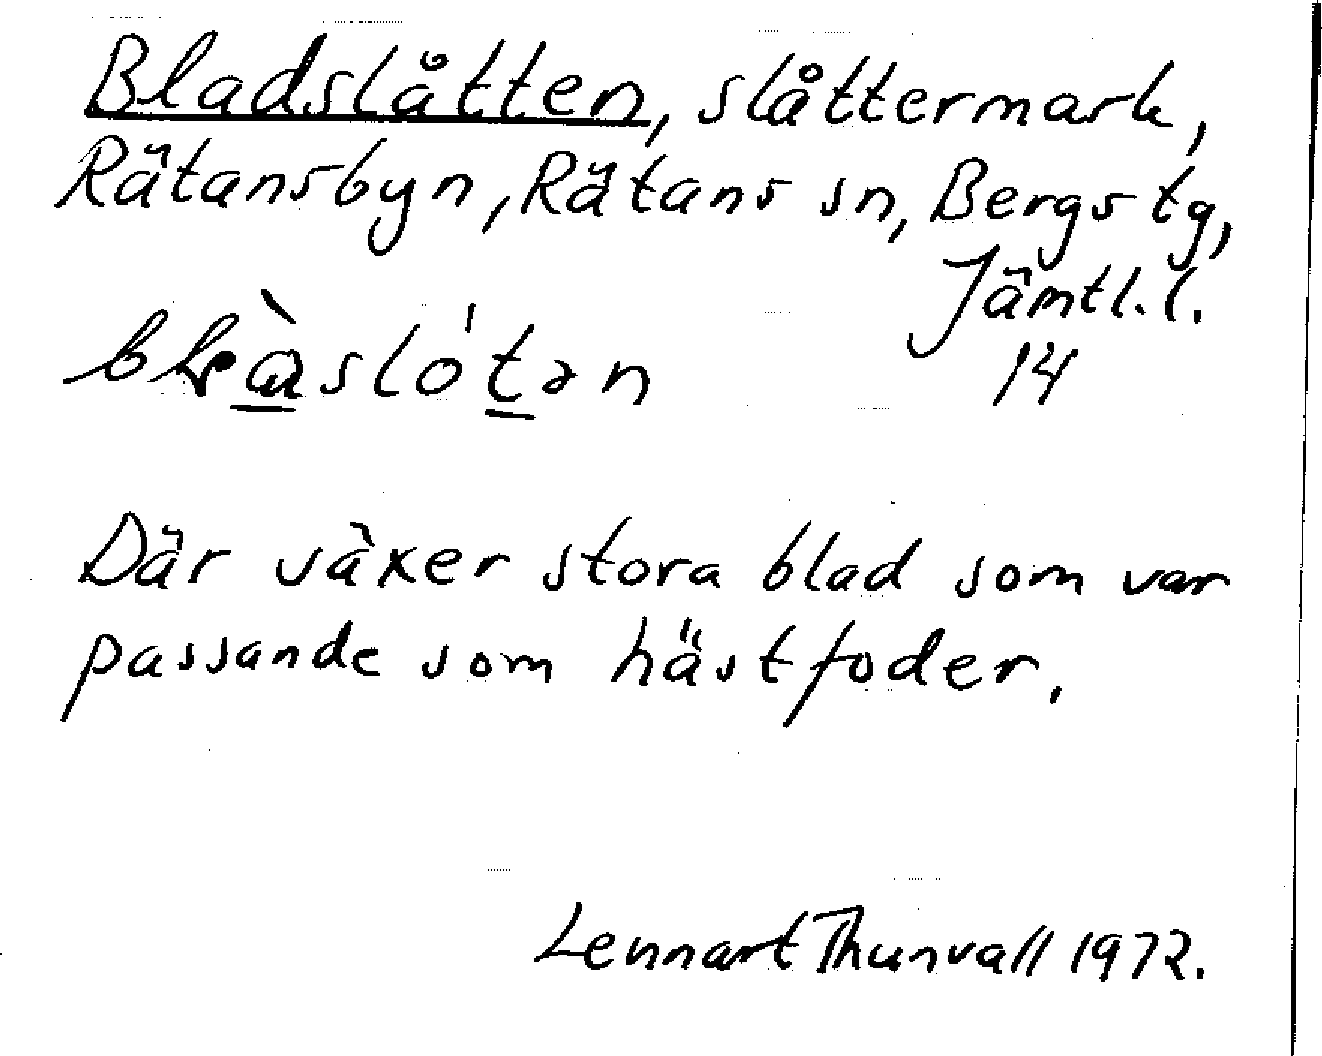 Bladslåtten, slåttermark,
Rätansbyn, Rätans sn, Bergs tg,
Jämtl. l.
14
slo̍tən
Där växer stora blad som var
passande som hästfoder.
Lennart Thunvall 1972.